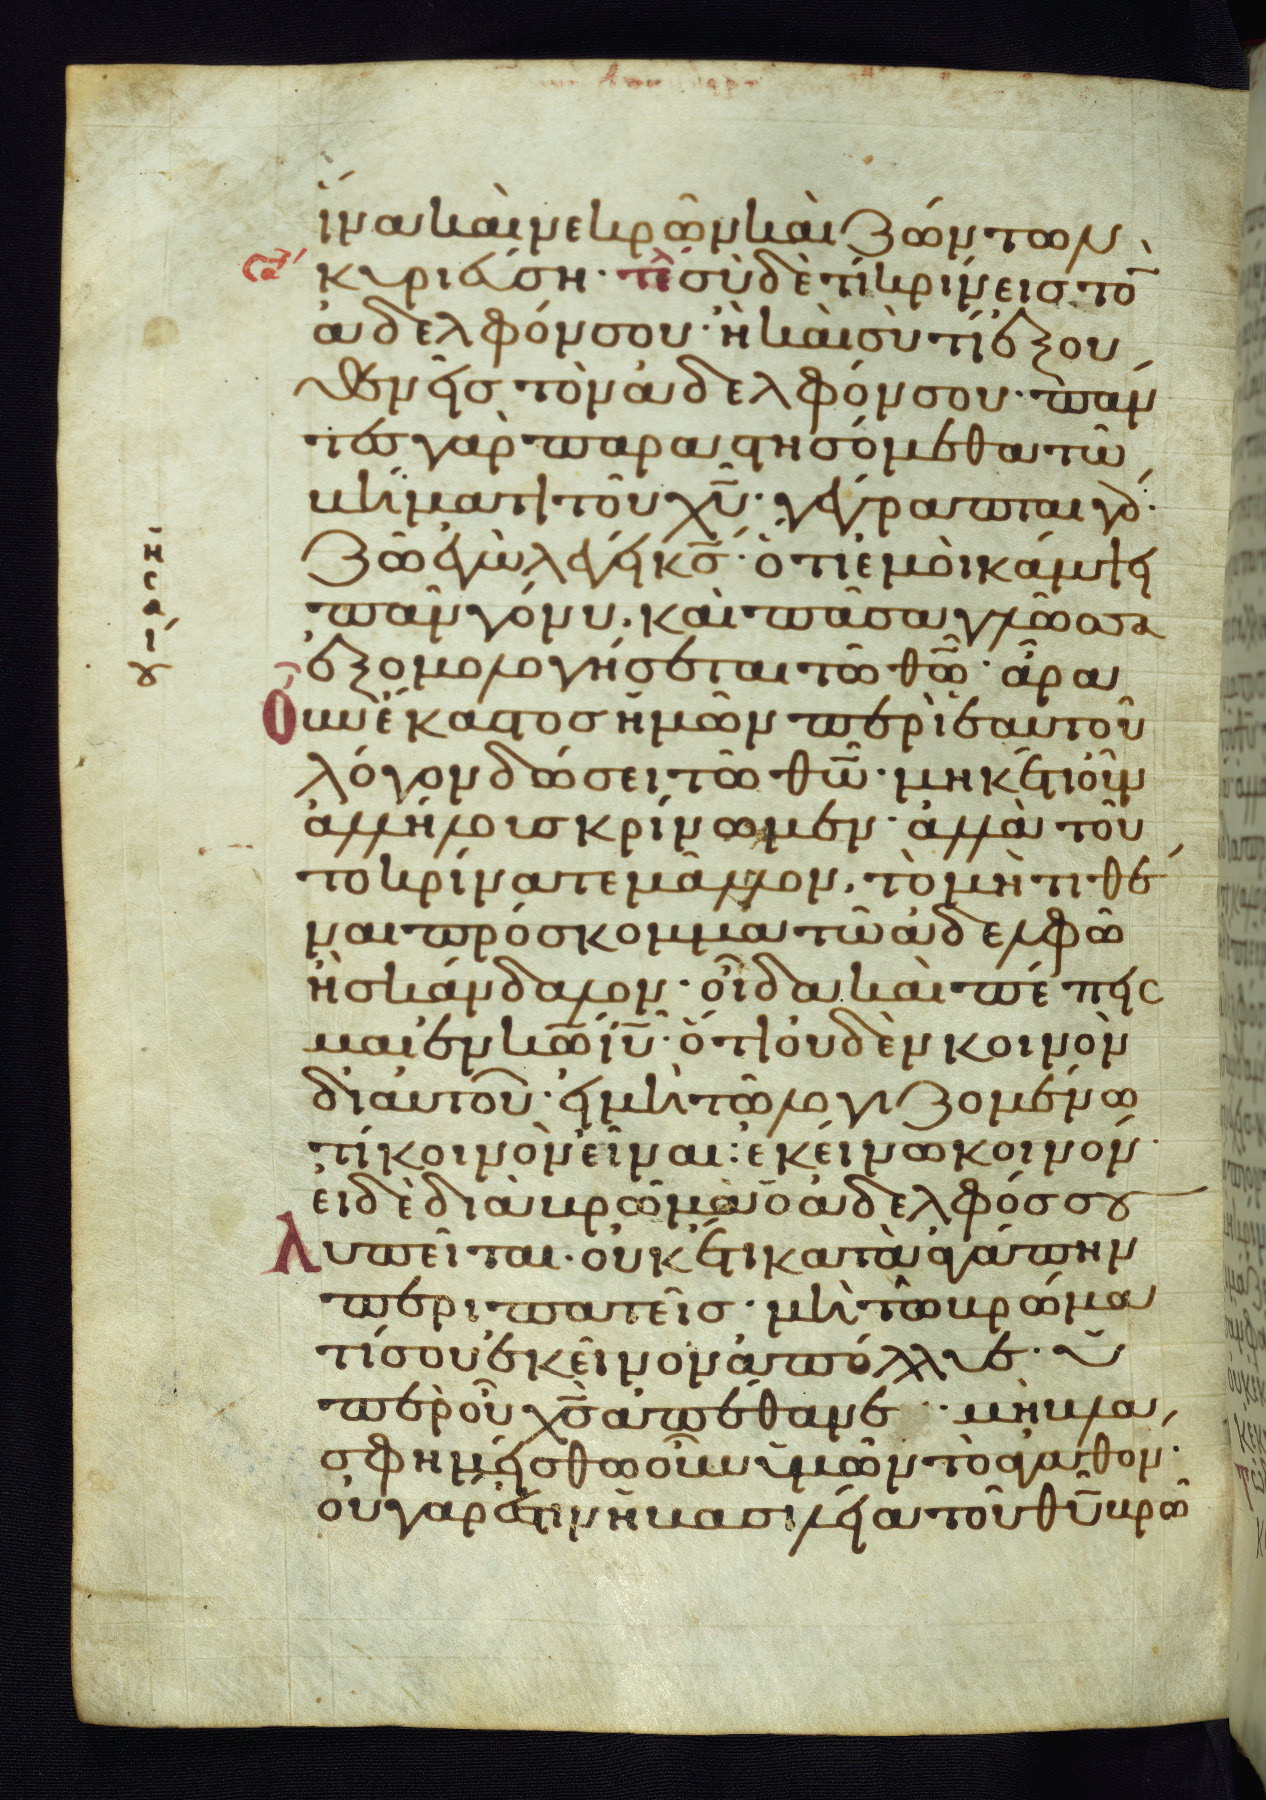 ἵνα καὶ νεκρῶν καὶ ζώντων
κυριεύσῃ· τε σὺ δὲ τί κρίνεις το̅
ἀδελφόν σου· ἢ καὶ σὺ τί ἐξου
θενεῖς τὸν ἀδελφόν σου· πάν
τες γὰρ παραστησόμεθα τῶ
βήματι τοῦ χ̅υ̅· γέγραπται γάρ·
ζῶ ἐγὼ λέγει κ̅ς̅· ὅτι ἐμοὶ κάμψει
πᾶν γόνυ, καὶ πᾶσα γλῶσσα
ἐξομολογήσεται τῶ θ̅ω̅· ἄρα
Οὖν ἕκαστος ἡμῶν περὶ ἑαυτοῦ
λόγον δώσει τῶ θ̅ω̅· μηκέτι οὖν
ἀλλήλους κρίνωμεν· ἀλλὰ τοῦ
το κρίνατε μᾶλλον, τὸ μὴ τιθέ
ναι πρόσκομμα τῶ ἀδελφῶ
ἢ σκάνδαλον· οἶδα καὶ πέπεισ
μαι ἐν κ̅ω̅ ι̅υ̅· ὅτι οὐδὲν κοινὸν
δι αυτοῦ· εἰ μὴ τῶ λογιζομένω
τί κοινὸν εἶναι: ἐκείνω κοινόν·
εἰ δὲ διὰ βρῶμα ὁ ἀδελφός σου
Λυπεῖται· οὐκέτι κατὰ ἀγάπην
περιπατεῖς· μὴ τῶ βρώμα
τί σου ἐκεῖνον ἀπόλλυε· ὑ
πὲρ οὗ χ̅ς̅ ἀπέθανε· μὴ βλα
σφημείσθω οὖν ὑμῶν τὸ ἀγαθον·
οὐ γάρ ἐστιν ἡ βασιλεία τοῦ θ̅υ̅ βρῶ
ησαΐου